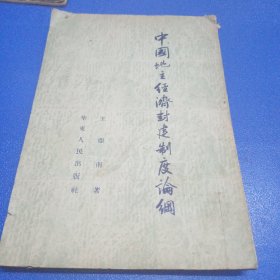 中國地主经濟封建制度論綱
王亞南著
華東人民出版社